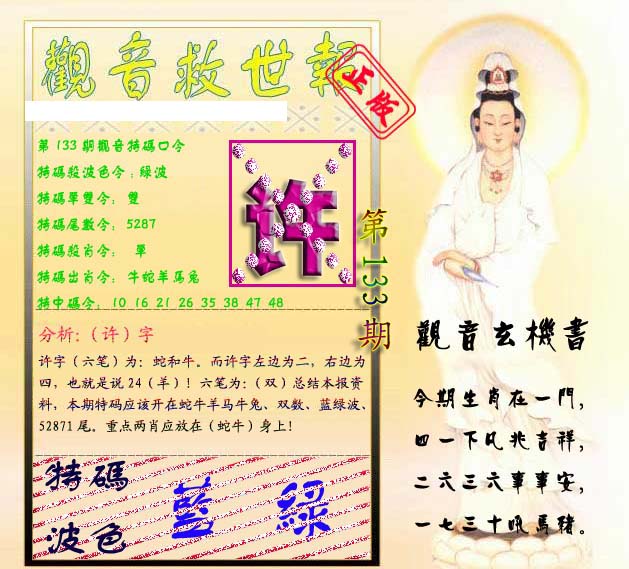 觀音救世報
正版
第 133 期觀音特碼口令
特碼殺波色令：綠波
特碼單雙令： 雙
特碼尾數令： 5287
特碼殺肖令： 單
特碼出肖令： 牛蛇羊馬兔
特中碼令： 10 16 21 26 35 38 47 48
许
第133期
分析:（许）字
许字（六笔）为：蛇和牛。而许字左边为二，右边为
四，也就是说 24（羊）！六笔为：（双）总结本报资
料，本期特码应该开在蛇牛羊马牛兔、双数、蓝绿波、
52871 尾。重点两肖应放在（蛇牛）身上！
特碼
波色
藍 綠
觀音玄機書
今期生肖在一門，
四一下凡兆吉祥，
二六三六事事安，
一七三十吼馬豬。